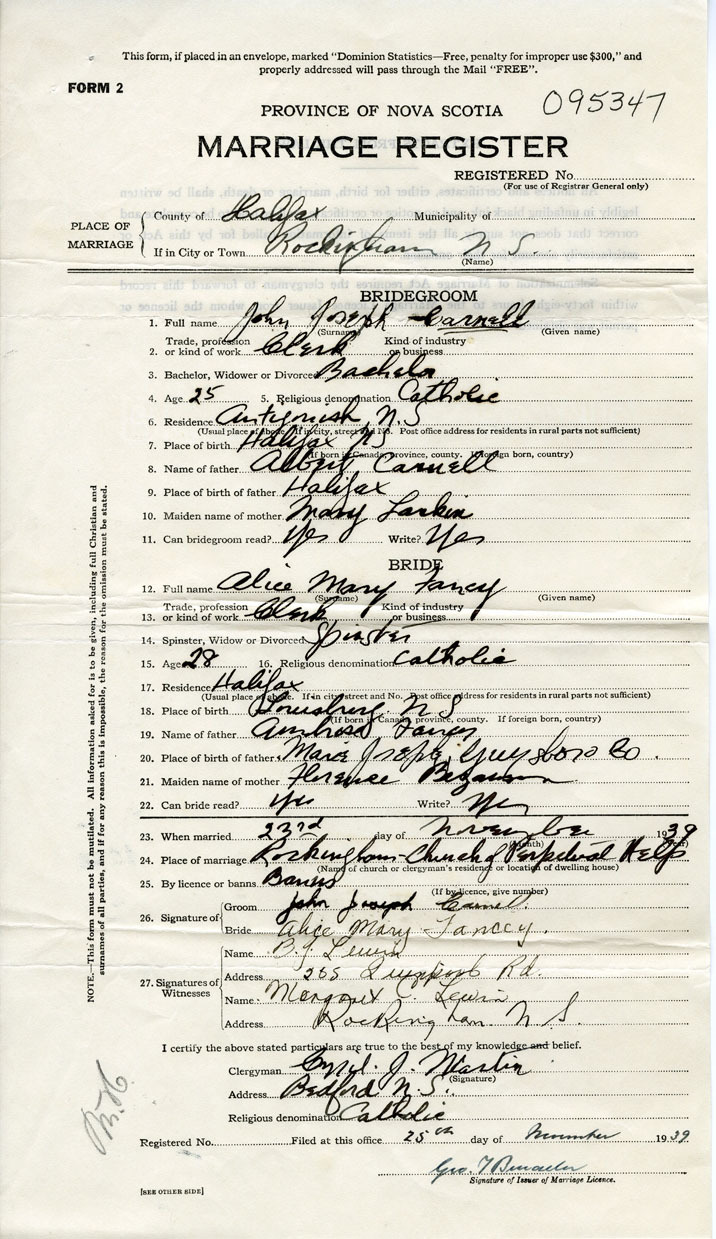 This form, if placed in an envelope, marked "Dominion Statistics—Free, penalty for improper use $300," and
properly addressed will pass through the Mail "FREE".
FORM 2
095347
PROVINCE OF NOVA SCOTIA
MARRIAGE REGISTER
REGISTERED No
(For use of Registrar General only)
PLACE OF MARRIAGE
County of Halifax Municipality of
If in City or Town Rockingham N S.
(Name)
BRIDEGROOM
1. Full name John Joseph Carnell
(Surname) (Given name)
Trade, profession Kind of industry
2. or kind of work Clerk or business
3. Bachelor, Widower or Divorced Bachelor
4. Age 25 5. Religious denomination Catholic
6. Residence Antigonish, N.S
(Usual place of abode. If in city, street and No. Post office address for residents in rural parts not sufficient)
7. Place of birth Halifax NS
(If born in Canada province, county. If foreign born, country)
8. Name of father Albert Carnell
9. Place of birth of father Halifax
10. Maiden name of mother Mary Larkin
11. Can bridegroom read? Yes Write? Yes
BRIDE
12. Full name Alice Mary Fancy
(Surname) (Given name)
Trade, profession Kind of industry
13. or kind of work Clerk or business
14. Spinster, Widow or Divorced Spinster
15. Age 28 16. Religious denomination Catholic
17. Residence Halifax
(Usual place of abode. If in city street and No. Post office address for residents in rural parts not sufficient)
18. Place of birth Louisburg N S
(If born in Canada, province, county. If foreign born, country)
19. Name of father Ambrose
20. Place of birth of father Marie Joseph, Guysboro Co.
21. Maiden name of mother Florence
22. Can bride read? Yes Write? Yes
23. When married 23rd day of November 1939
(Month) (Year)
24. Place of marriage Rockingham - Church of Perpetual Help
(Name of church or clergyman's residence or location of dwelling house)
25. By licence or banns Banns
(If by licence, give number)
26. Signature of
Groom John Joseph Carnell.
Bride Alice Mary Fancey.
27. Signatures of Witnesses
Name B.J. Lewin
Address 255 Rd.
Name Margaret C. Lewin
Address Rockingham. N S.
I certify the above stated particulars are true to the best of my knowledge and belief.
Clergyman Cyril. J. Martin
(Signature)
Address Bedford N.S.
Religious denomination Catholic
Registered No. Filed at this office 25th day of November 1939
Geo. T
Signature of Issuer of Marriage Licence.
[SEE OTHER SIDE]
NOTE.—This form must not be mutilated. All information asked for is to be given, including full Christian and
surnames of all parties, and if for any reason this is impossible, the reason for the omission must be stated.